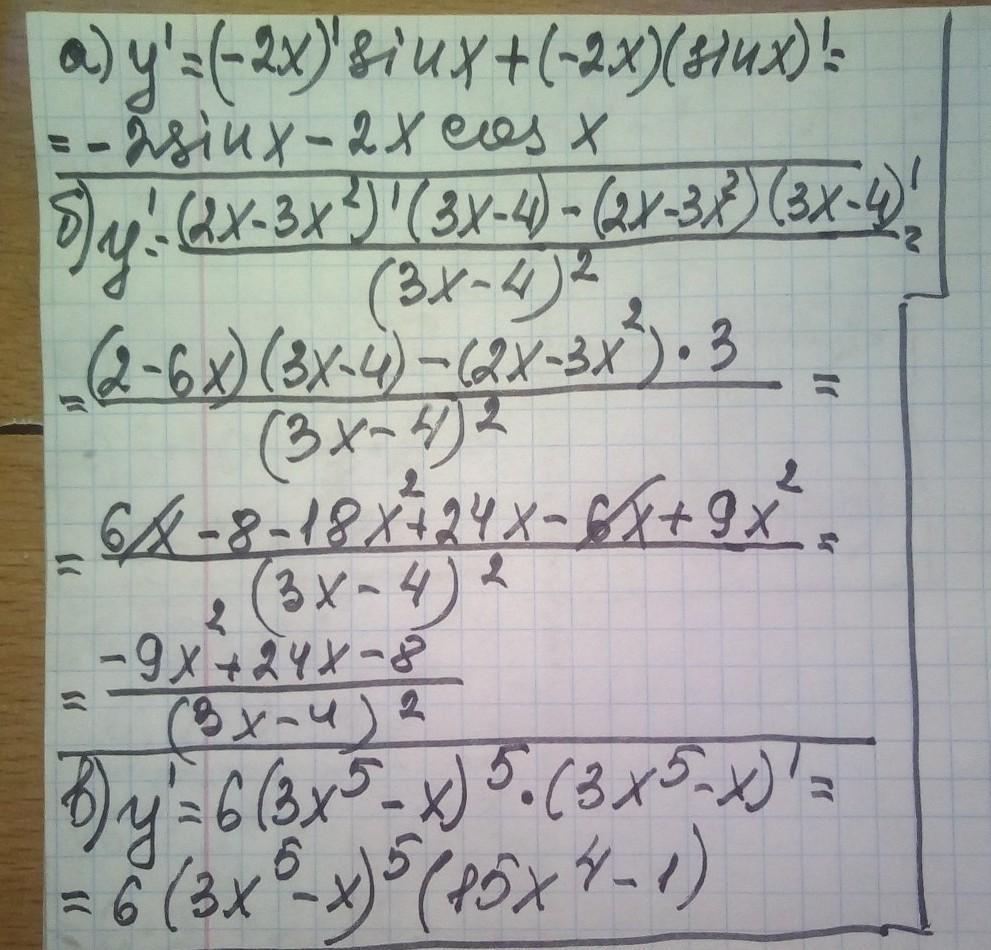 а) y' = (-2x)' sin x + (-2x)(sin x)' =
= -2 sin x - 2x cos x
б) y' = (2x-3x²)' (3x-4) - (2x-3x²) (3x-4)' =
(3x-4)²
= (2-6x) (3x-4) - (2x-3x²) · 3 =
(3x-4)²
= 6x - 8 - 18x² + 24x - 6x + 9x² =
(3x-4)²
= -9x² + 24x - 8
(3x-4)²
в) y' = 6(3x⁵ - x)⁵ · (3x⁵ - x)' =
= 6 (3x⁵ - x)⁵ (15x⁴ - 1)